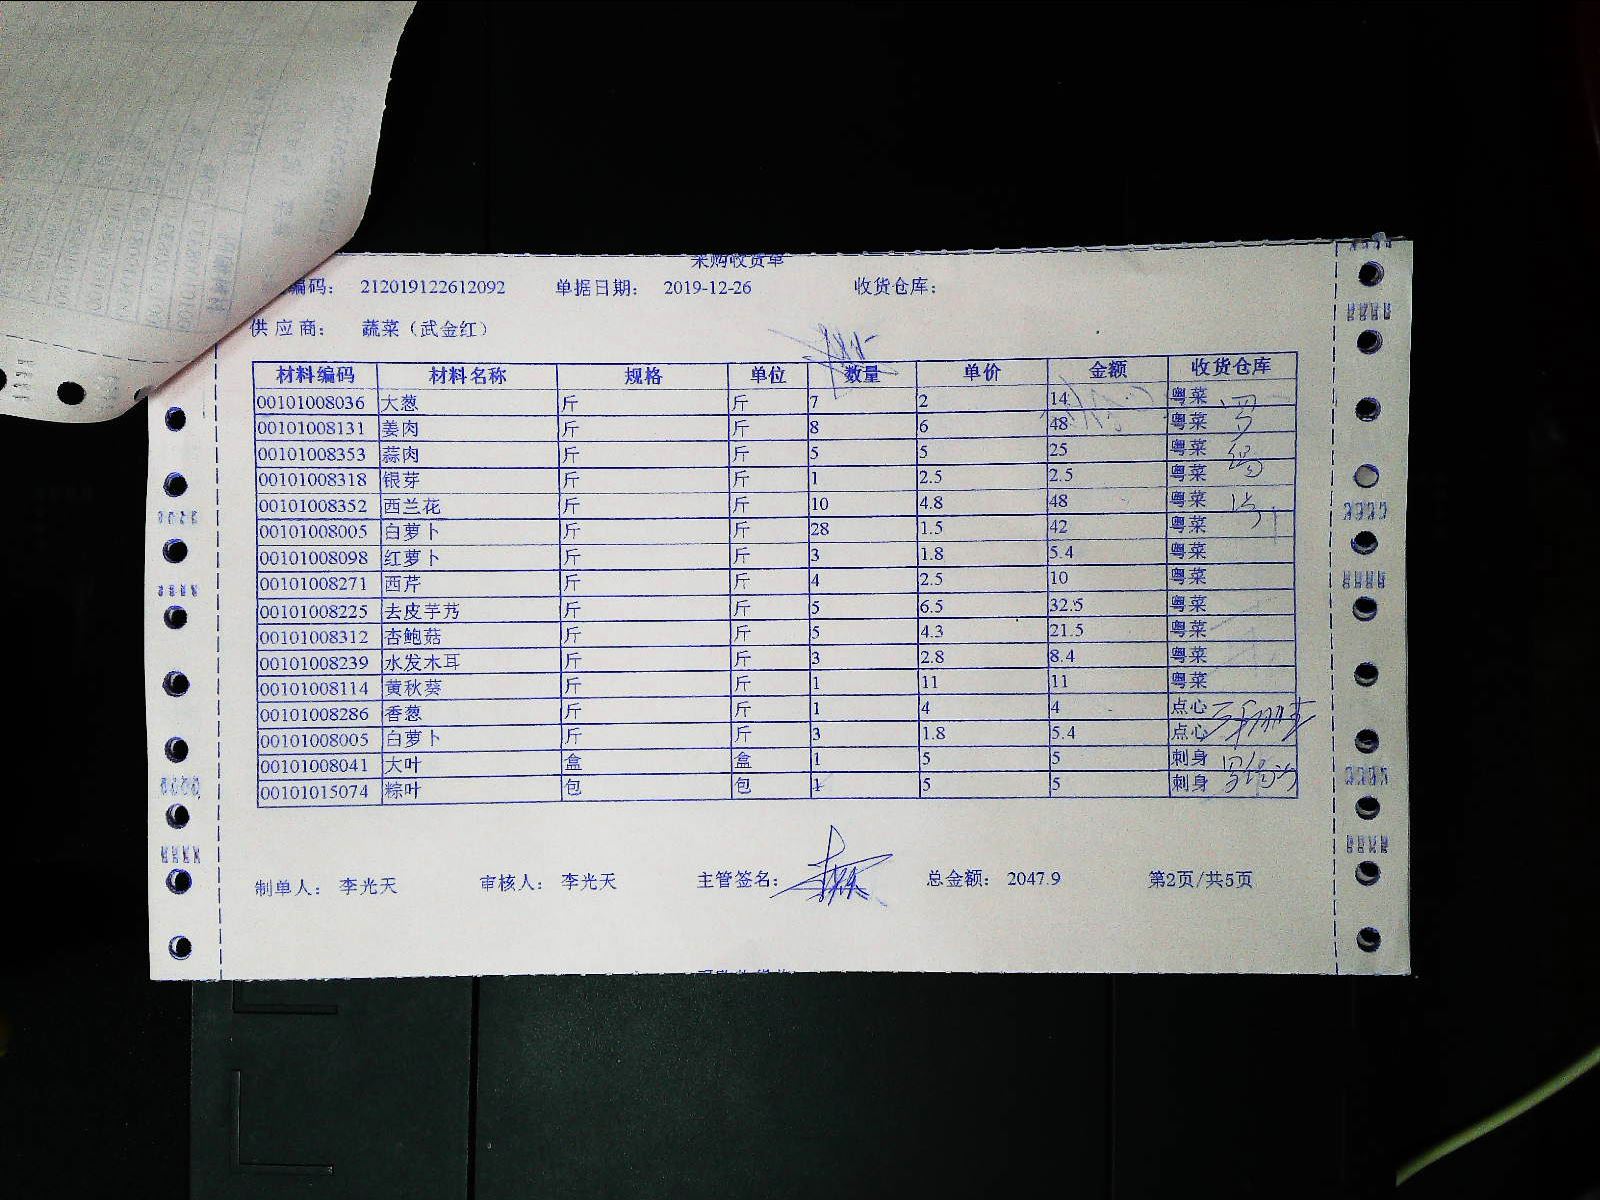 采购收货单
编码： 212019122612092 单据日期： 2019-12-26 收货仓库：
供 应 商： 蔬菜（武金红）
材料编码 材料名称 规格 单位 数量 单价 金额 收货仓库
00101008036 大葱 斤 斤 7 2 14 粤菜
00101008131 姜肉 斤 斤 8 6 48 粤菜
00101008353 蒜肉 斤 斤 5 5 25 粤菜
00101008318 银芽 斤 斤 1 2.5 2.5 粤菜
00101008352 西兰花 斤 斤 10 4.8 48 粤菜
00101008005 白萝卜 斤 斤 28 1.5 42 粤菜
00101008098 红萝卜 斤 斤 3 1.8 5.4 粤菜
00101008271 西芹 斤 斤 4 2.5 10 粤菜
00101008225 去皮芋艿 斤 斤 5 6.5 32.5 粤菜
00101008312 杏鲍菇 斤 斤 5 4.3 21.5 粤菜
00101008239 水发木耳 斤 斤 3 2.8 8.4 粤菜
00101008114 黄秋葵 斤 斤 1 11 11 粤菜
00101008286 香葱 斤 斤 1 4 4 点心
00101008005 白萝卜 斤 斤 3 1.8 5.4 点心
00101008041 大叶 盒 盒 1 5 5 刺身
00101015074 粽叶 包 包 1 5 5 刺身
制单人： 李光天 审核人： 李光天 主管签名： 总金额： 2047.9 第2页/共5页